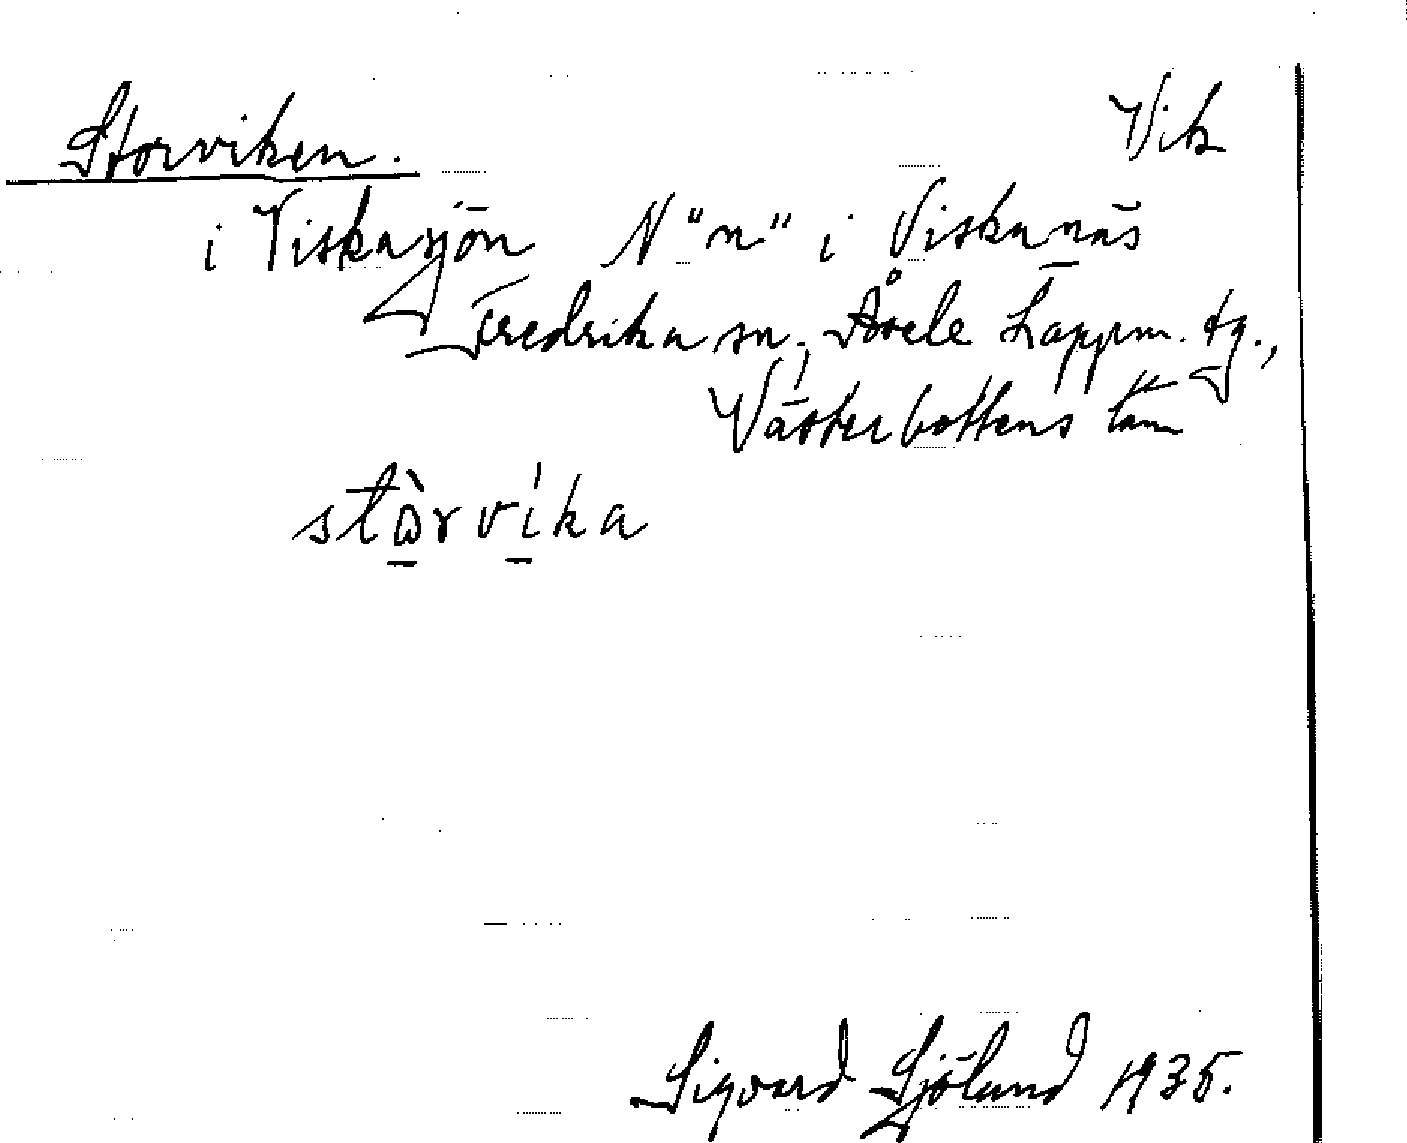 Storviken. Vik
i Viskasjön N "n" i Viskanäs
Fredrika sn., Åsele Lappm. tg.,
Västerbottens län
stòrvíka
Sigvard Sjölund 1935.